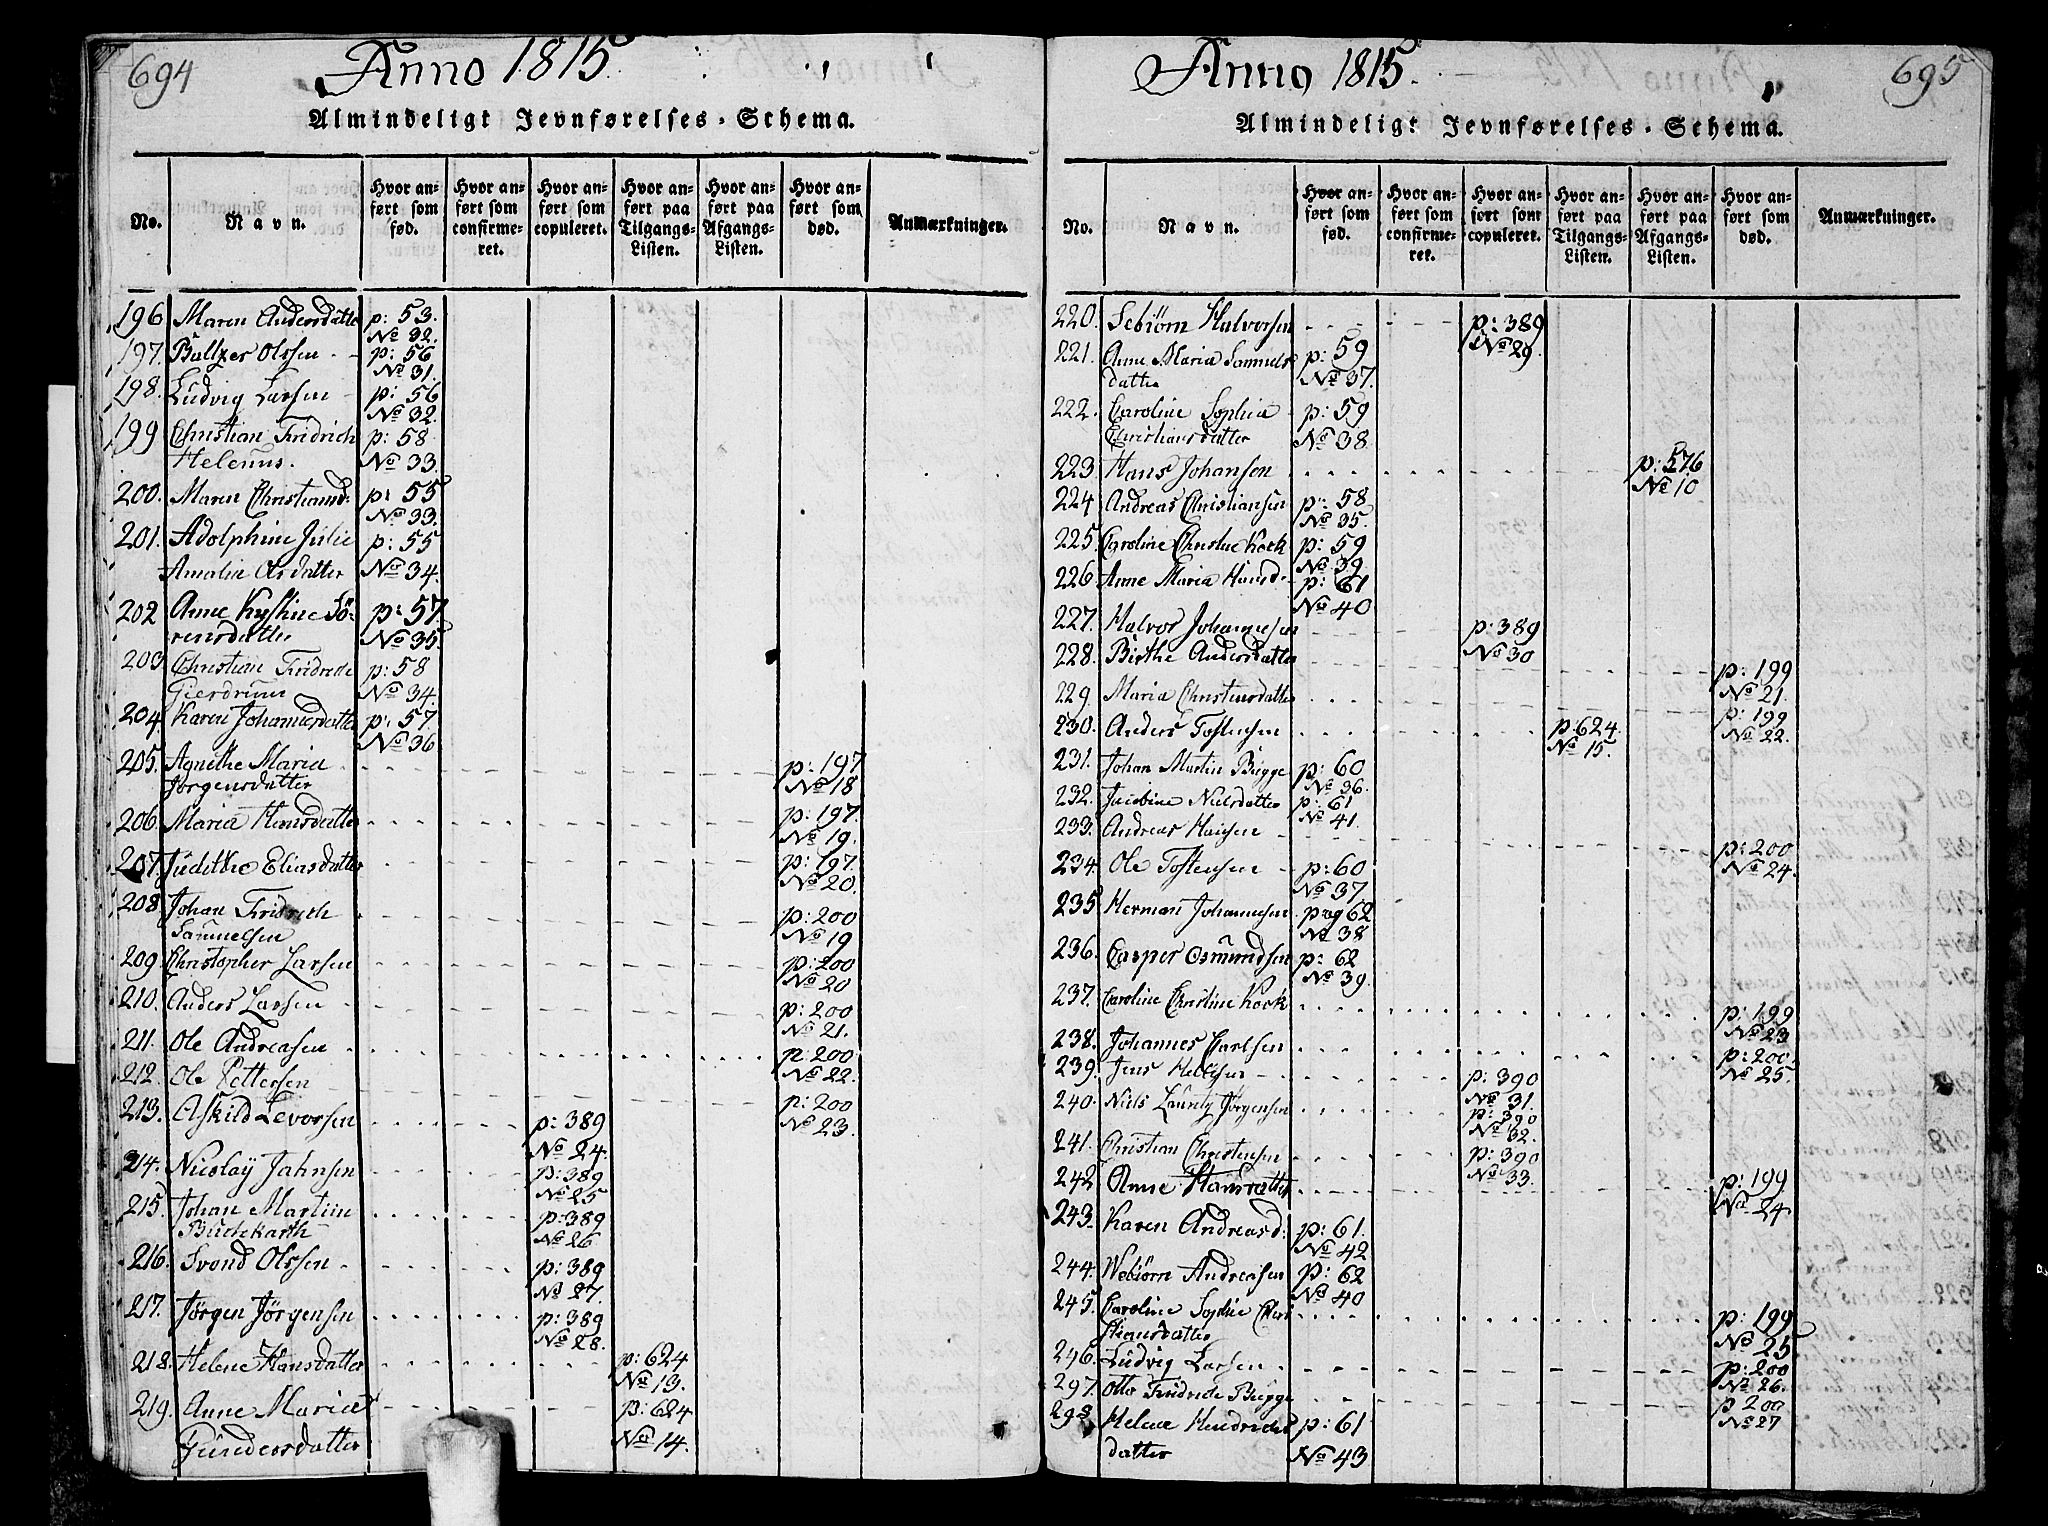 694
Anno 1815.
Almindeligt Jevnførelses-Schema.
No.
Navn.
Hvor anført som fød.
Hvor anført som confirmeret.
Hvor anført som copuleret.
Hvor anført paa Tilgangs-Listen.
Hvor anført paa Afgangs-Listen.
Hvor anført som død.
Anmærkninger.
196 Maren Andersdatter p: 53. No 32.
197. Baltzer Olssen p: 56 No 31.
198. Ludvig Larsen p: 56 No 32.
199 Christian Fridrich p: 58
Helenus. No 33.
200. Maren Christiansd: p: 55 No 33.
201. Adolphine Julie p: 55
Amalie Olsdatter No 34.
202 Anne Kirstine Sö- p: 57.
rensdatter No 35.
203 Christian Fridrich p: 58
Gierdrum No 34.
204. Karen Johannesdatter p: 57. No 36
205. Agnethe Maria p: 197
Jørgensdatter No 18
206. Maria Hansdatter p: 197. No 19.
207. Judithe Eliasdatter p: 197. No 20.
208 Johan Fridrich p: 200
Samuelsen No 19
209 Christopher Larsen p: 200 No 20
210. Anders Larsen p: 200 No 21.
211. Ole Andreasen p: 200 No 22.
212. Ole Pettersen p: 200 No 23.
213. Askild Levorsen p: 389 No 24.
214. Nicolaÿ Jahnsen p: 389 No 25
215. Johan Martin p: 389
No 26
216. Svend Olssen p: 389 No 27.
217. Jørgen Jørgensen p: 389 No 28.
218. Helene Hansdatter p: 624 No 13.
219. Anne Maria p: 624
Gundersdatter No 14.
695
Anno 1815.
Almindeligt Jevnførelses-Schema.
No.
Navn.
Hvor anført som fød.
Hvor anført som confirmeret.
Hvor anført som copuleret.
Hvor anført paa Tilgangs-Listen.
Hvor anført paa Afgangs-Listen.
Hvor anført som død.
Anmærkninger.
220. Sebiørn Halvorsen p: 389 No 29.
221. Anne Maria Samuels p: 59
datter No 37.
222. Caroline Sophia p: 59
Christiansdatter No 38
223. Hans Johansen p: 576 No 10
224 Andreas Christiansen p: 58 No 35.
225. Caroline Christine Kock p: 59 No 39
226. Anne Maria Hansd: p: 61 No 40
227. Halvor Johannesen p: 389 No 30
228. Birthe Andersdatter p: 199 No 21.
229. Maria Christensdatter p: 199 No 22.
230. Anders Tostensen p: 624. No 15.
231. Johan Martin Bugge p: 60 No 36.
232. Jacobine Nielsdatter p: 61 No 41.
233. Andreas Hansen p: 200 No 24.
234. Ole Tostensen p: 60 No 37
235 Herman Johannesen pag 62 No 38
236. Casper Osmundsen p: 62 No 39.
237. Caroline Christine Kock p: 199 No 23
238. Johannes Carlsen p: 200 No 25.
239. Jens Hellesen p: 390 No 31.
240. Niels Lauritz Jørgensen p: 390 No 32.
241. Christian Christensen p: 390 No 33.
242 Anne Hansdatter p: 199 No 24
243. Karen Andreasd: p: 61. No 42
244. Webiørn Andreasen p: 62 No 40
245. Caroline Sophie Chri p: 199
stiansdatter No 25
296. Ludvig Larsen p: 200 No 26.
297. Otto Fridrich Bugge p 200 No 27
298 Helene Hendrichs p: 61
datter No 43